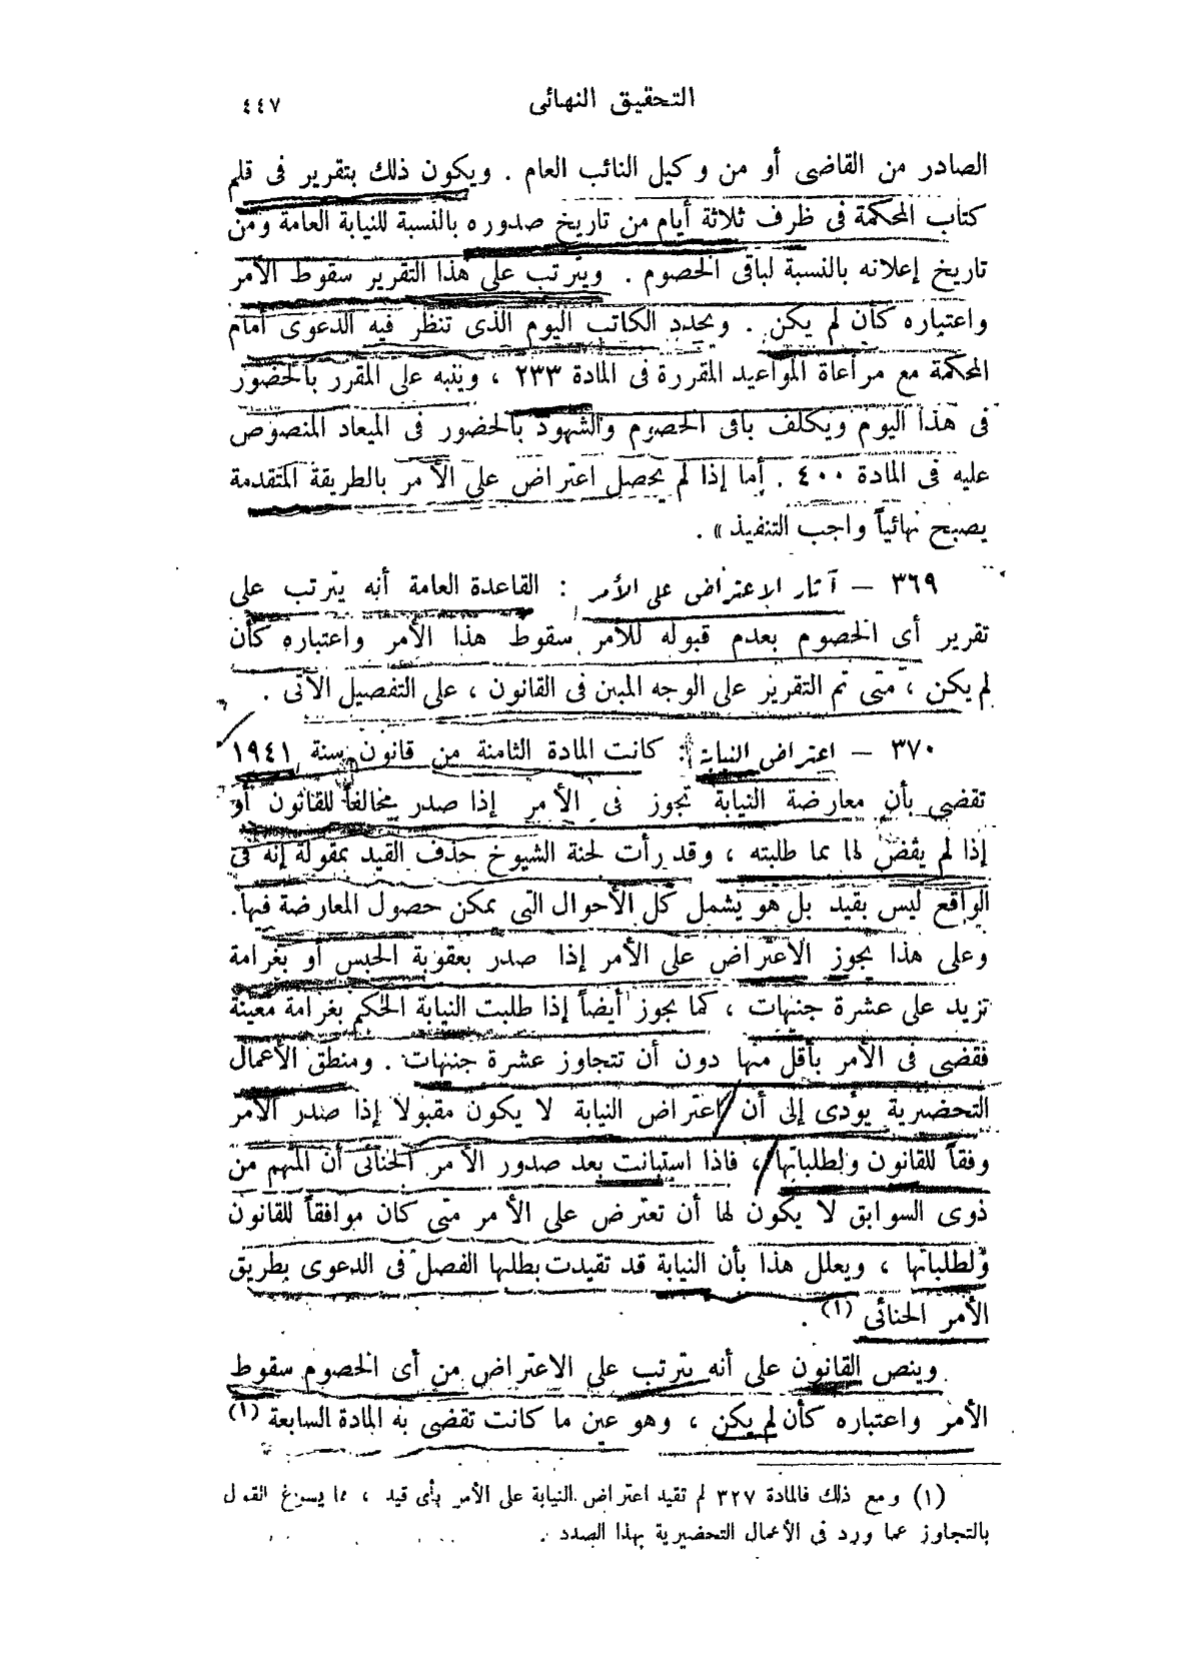 التحقيق النهائى ٤٤٧
الصادر من القاضى أو من وكيل النائب العام . ويكون ذلك بتقرير فى قلم
كتاب المحكمة فى ظرف ثلاثة أيام من تاريخ صدوره بالنسبة للنيابة العامة ومن
تاريخ إعلانه بالنسبة لباقى الخصوم . ويترتب على هذا التقرير سقوط الأمر
واعتباره كأن لم يكن . ويحدد الكاتب اليوم الذى تنظر فيه الدعوى أمام
المحكمة مع مراعاة المواعيد المقررة فى المادة ٢٣٣ ، وينبه على المقرر بالحضور
فى هذا اليوم ويكلف باقى الخصوم والشهود بالحضور فى الميعاد المنصوص
عليه فى المادة ٤٠٠ . أما إذا لم يحصل اعتراض على الأمر بالطريقة المتقدمة
يصبح نهائياً واجب التنفيذ » .
٣٦٩ – آثار الاعتراض على الأمر : القاعدة العامة أنه يترتب على
تقرير أى الخصوم بعدم قبوله للأمر سقوط هذا الأمر واعتباره كأن
لم يكن ، متى تم التقرير على الوجه المبين فى القانون ، على التفصيل الآتى .
٣٧٠ – اعتراض النيابة : كانت المادة الثامنة من قانون سنة ١٩٤١
تقضى بأن معارضة النيابة تجوز فى الأمر إذا صدر مخالفاً للقانون أو
إذا لم يقض لها بما طلبته ، وقد رأت لجنة الشيوخ حذف القيد بمقولة إنه فى
الواقع ليس بقيد بل هو يشمل كل الأحوال التى يمكن حصول المعارضة فيها.
وعلى هذا يجوز الاعتراض على الأمر إذا صدر بعقوبة الحبس أو بغرامة
تزيد على عشرة جنيهات ، كما يجوز أيضاً إذا طلبت النيابة الحكم بغرامة معينة
فقضى فى الأمر بأقل منها دون أن تتجاوز عشرة جنيهات . ومنطق الأعمال
التحضيرية يؤدى إلى أن اعتراض النيابة لا يكون مقبولا إذا صدر الأمر
وفقاً للقانون ولطلباتها ، فاذا استبانت بعد صدور الأمر الجنائى أن المتهم من
ذوى السوابق لا يكون لها أن تعترض على الأمر متى كان موافقاً للقانون
ولطلباتها ، ويعلل هذا بأن النيابة قد تقيدت بطلبها الفصل فى الدعوى بطريق
الأمر الجنائى (١) .
وينص القانون على أنه يترتب على الاعتراض من أى الخصوم سقوط
الأمر واعتباره كأن لم يكن ، وهو عين ما كانت تقضى به المادة السابعة (١)
(١) ومع ذلك فالمادة ٣٢٧ لم تقيد اعتراض النيابة على الأمر بأى قيد ، مما يسوغ القول
بالتجاوز عما ورد فى الأعمال التحضيرية بهذا الصدد .